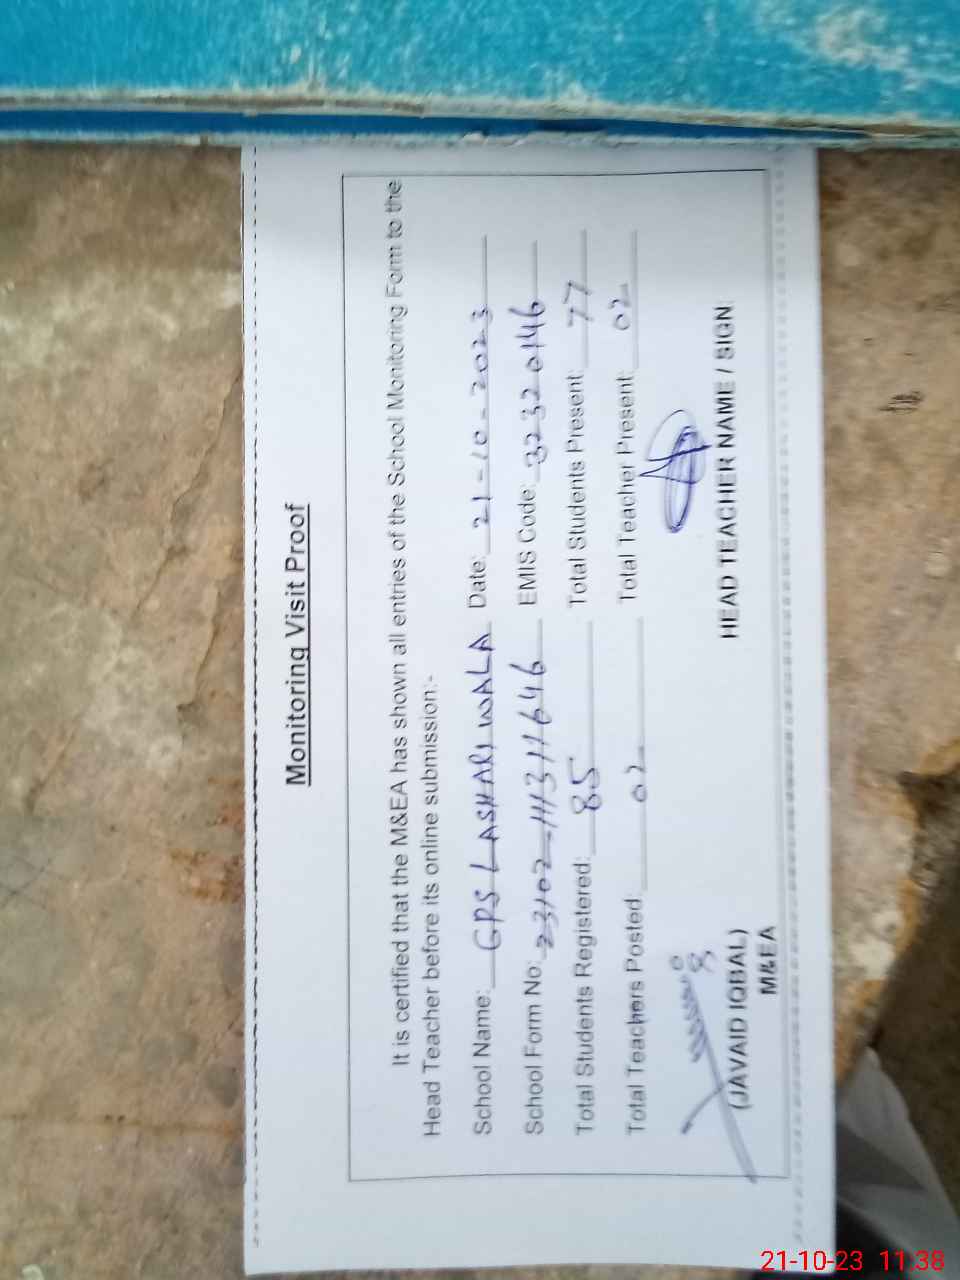 Monitoring Visit Proof
It is certified that the M&EA has shown all entries of the School Monitoring Form to the
Head Teacher before its online submission:-
School Name: GPS LASHARI WALA Date: 21-10-2023
School Form No: 23102-1113111646 EMIS Code: 32320146
Total Students Registered: 85 Total Students Present: 77
Total Teachers Posted: 02 Total Teacher Present: 02
(JAVAID IQBAL)
M&EA
HEAD TEACHER NAME / SIGN:
21-10-23 11:38